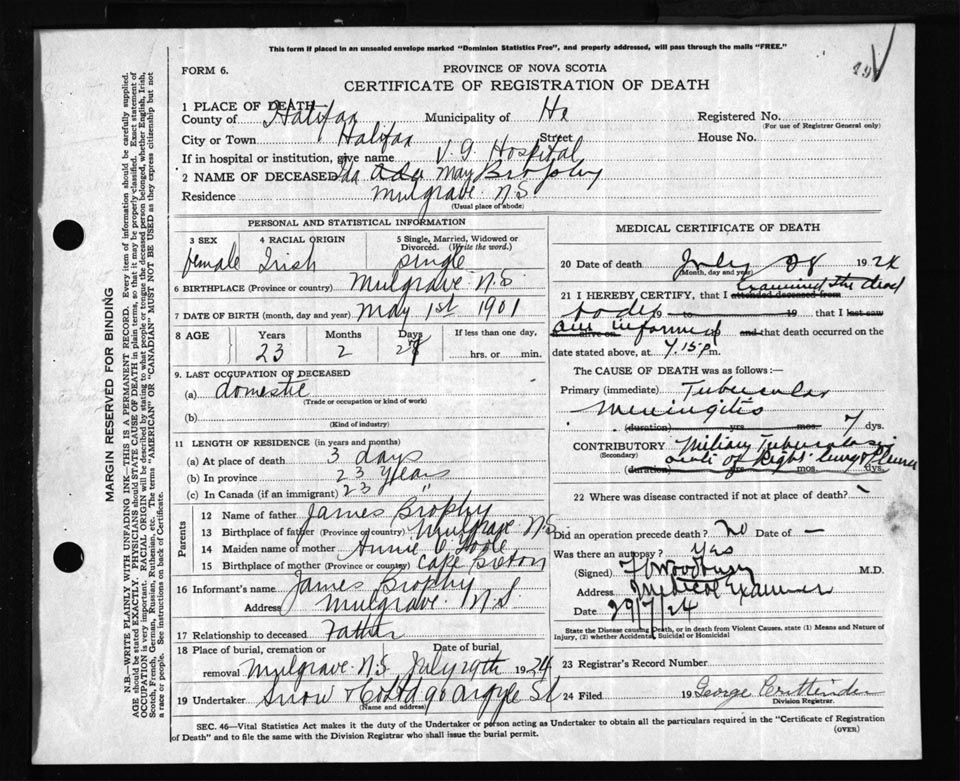 This form if placed in an unsealed envelope marked "Dominion Statistics Free", and properly addressed, will pass through the mails "FREE."
FORM 6.
PROVINCE OF NOVA SCOTIA
CERTIFICATE OF REGISTRATION OF DEATH
1 PLACE OF DEATH—
County of Halifax Municipality of Hx Registered No.
(For use of Registrar General only)
City or Town Halifax Street House No.
If in hospital or institution, give name V. G. Hospital
2 NAME OF DECEASED Ida Ada May Brophy
Residence Mulgrave N.S.
(Usual place of abode)
PERSONAL AND STATISTICAL INFORMATION
3 SEX 4 RACIAL ORIGIN 5 Single, Married, Widowed or Divorced. (Write the word.)
female Irish single
6 BIRTHPLACE (Province or country) Mulgrave N.S.
7 DATE OF BIRTH (month, day and year) May 1st 1901
8 AGE Years Months Days If less than one day,
23 2 28 hrs. or min.
9. LAST OCCUPATION OF DECEASED
(a) domestic
(Trade or occupation or kind of work)
(b)
(Kind of industry)
11 LENGTH OF RESIDENCE (in years and months)
(a) At place of death 3 days
(b) In province 23 years
(c) In Canada (if an immigrant) 23 "
Parents
12 Name of father James Brophy
13 Birthplace of father (Province or country) Mulgrave N.S
14 Maiden name of mother Annie O'Toole
15 Birthplace of mother (Province or country) Cape Breton
16 Informant's name James Brophy
Address Mulgrave N.S.
17 Relationship to deceased Father
18 Place of burial, cremation or removal Mulgrave N.S Date of burial July 29th 1924
19 Undertaker Snow & Co 90 Argyle St
(Name and address)
MEDICAL CERTIFICATE OF DEATH
20 Date of death July 28 1924
(Month, day and year)
21 I HEREBY CERTIFY, that I attended deceased from examined the dead
body 19 to 19 that I last saw
alive on am informed and that death occurred on the
date stated above, at 7.15 p m.
The CAUSE OF DEATH was as follows:—
Primary (immediate) Tubercular
Meningitis
(duration) yrs mos. 7 dys.
CONTRIBUTORY Miliary Tuberculosis
(Secondary) of Right lung & Pleura
(duration) yrs mos dys.
22 Where was disease contracted if not at place of death?
Did an operation precede death? No Date of —
Was there an autopsy? Yes
(Signed) Woodbury M.D.
Address Medical Examiner
Date 29/7/24
State the Disease causing Death, or in death from Violent Causes, state (1) Means and Nature of Injury, (2) whether Accidental, Suicidal or Homicidal
23 Registrar's Record Number
24 Filed 19 George Crittenden
Division Registrar.
SEC. 46—Vital Statistics Act makes it the duty of the Undertaker or person acting as Undertaker to obtain all the particulars required in the "Certificate of Registration of Death" and to file the same with the Division Registrar who shall issue the burial permit.
(OVER)
MARGIN RESERVED FOR BINDING
N.B—WRITE PLAINLY WITH UNFADING INK—THIS IS A PERMANENT RECORD. Every item of information should be carefully supplied.
AGE should be stated EXACTLY. PHYSICIANS should STATE CAUSE OF DEATH in plain terms, so that it may be properly classified. Exact statement of
OCCUPATION is very important. RACIAL ORIGIN will be described by stating to what people or tongue the deceased person belonged, whether English, Irish,
Scotch, French, German, Russian, Ruthenian, etc. The terms "AMERICAN" OR "CANADIAN" MUST NOT BE USED as they express citizenship but not
a race or people. See instructions on back of Certificate.